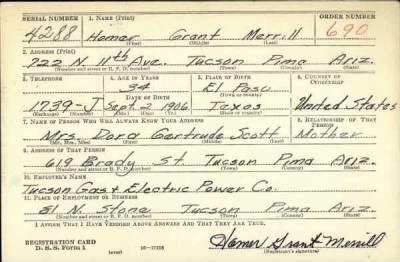 SERIAL NUMBER 1. NAME (Print) ORDER NUMBER
4288 Homer Grant Merrill 690
(First) (Middle) (Last)
2. ADDRESS (Print)
722 N. 11th Ave. Tucson Pima Ariz.
(Number and street or R. F. D. number) (Town) (County) (State)
3. TELEPHONE 4. AGE IN YEARS 5. PLACE OF BIRTH 6. COUNTRY OF CITIZENSHIP
34 El Paso
DATE OF BIRTH (Town or county)
1739-J Sept. 2 1906 Texas United States
(Exchange) (Number) (Mo.) (Day) (Yr.) (State or country)
7. NAME OF PERSON WHO WILL ALWAYS KNOW YOUR ADDRESS 8. RELATIONSHIP OF THAT PERSON
Mrs. Dora Gertrude Scott Mother
(Mr., Mrs., Miss) (First) (Middle) (Last)
9. ADDRESS OF THAT PERSON
619 Brady St. Tucson Pima Ariz.
(Number and street or R. F. D. number) (Town) (County) (State)
10. EMPLOYER'S NAME
Tucson Gas & Electric Power Co.
11. PLACE OF EMPLOYMENT OR BUSINESS
61 N. Stone Tucson Pima Ariz.
(Number and street or R. F. D. number) (Town) (County) (State)
I AFFIRM THAT I HAVE VERIFIED ABOVE ANSWERS AND THAT THEY ARE TRUE.
REGISTRATION CARD
D. S. S. Form 1 (over) Homer Grant Merrill
(Registrant's signature)